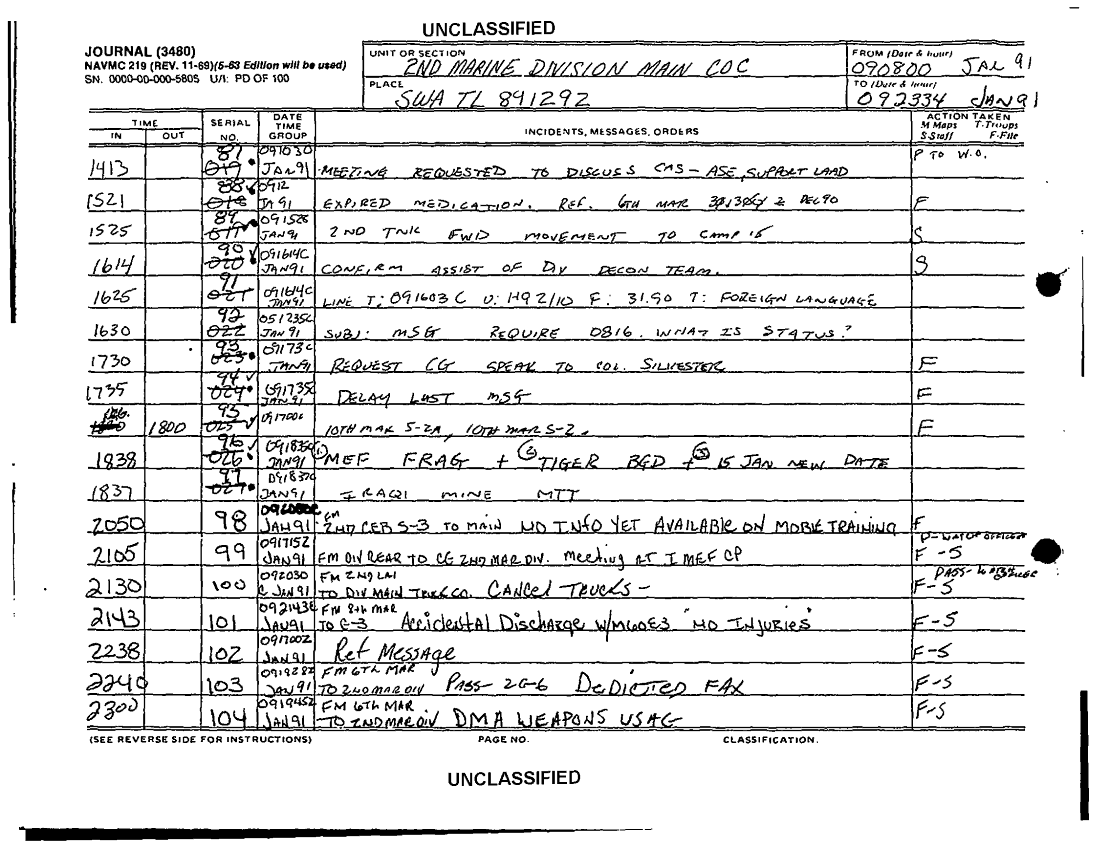 UNCLASSIFIED
JOURNAL (3480)
NAVMC 219 (REV. 11-69)(5-63 Edition will be used)
SN. 0000-00-000-5805 U/I: PD OF 100
UNIT OR SECTION
2ND MARINE DIVISION MAIN COC
PLACE
SWA TL 891292
FROM (Date & hour)
090800 JAN 91
TO (Date & hour)
092334 JAN 91
TIME
IN OUT
SERIAL NO.
DATE TIME GROUP
INCIDENTS, MESSAGES, ORDERS
ACTION TAKEN
M Maps T-Troups
S-Staff F-File
1413 87 091030 JAN 91 MEETING REQUESTED TO DISCUSS CMS - ASE, SUPPORT LAAD P TO W.O.
1521 88 0912 JA 91 EXPIRED MEDICATION. REF. 6TH MAR 2 DEC 90 F
1525 89 091528 JAN 91 2ND TNK FWD MOVEMENT TO CAMP 15 S
1614 90 020 091614C JAN91 CONFIRM ASSIST OF DIV DECON TEAM. S
1625 91 021 091614C JAN91 LINE T: 091603 C U: HQ 2/10 F: 31.90 T: FOREIGN LANGUAGE
1630 92 022 051235C JAN 91 SUBJ: MSG REQUIRE 0816. WHAT IS STATUS?
1730 93 023 09173C JAN91 REQUEST CG SPEAK TO COL. SILVESTER F
1735 94 024 091735C JAN91 DELAY LAST MSG F
1800 95 025 091700C 10TH MAR S-2A, 10TH MAR S-2. F
1838 96 026 091835C JAN91 (1) MEF FRAG + (2) TIGER BGD + (3) 15 JAN NEW DATE
1837 97 027 091837C JAN91 IRAQI MINE MTT
2050 98 JAN 91 FM 2ND CEB S-3 TO MAIN NO INFO YET AVAILABLE ON MOBILE TRAINING F
2105 99 091715Z JAN91 FM DIV REAR TO CG 2ND MAR DIV. Meeting AT I MEF CP F-S
2130 100 092030 C JAN 91 FM 2ND LAI TO DIV MAIN TRUCK CO. CANCEL TRUCKS - F-S
2143 101 092143C JAN91 FM 8th MAR TO G-3 Accidental Discharge W/M60E3 "NO INJURIES" F-S
2238 102 091700Z JAN 91 Ref Message F-S
2240 103 091928Z JAN 91 FM 6TH MAR TO 2ND MAR DIV PASS- 2G-6 DEDICTED FAX F-S
2300 104 091945Z JAN91 FM 6TH MAR TO 2ND MAR DIV DMA WEAPONS USAG F-S
(SEE REVERSE SIDE FOR INSTRUCTIONS) PAGE NO. CLASSIFICATION.
UNCLASSIFIED